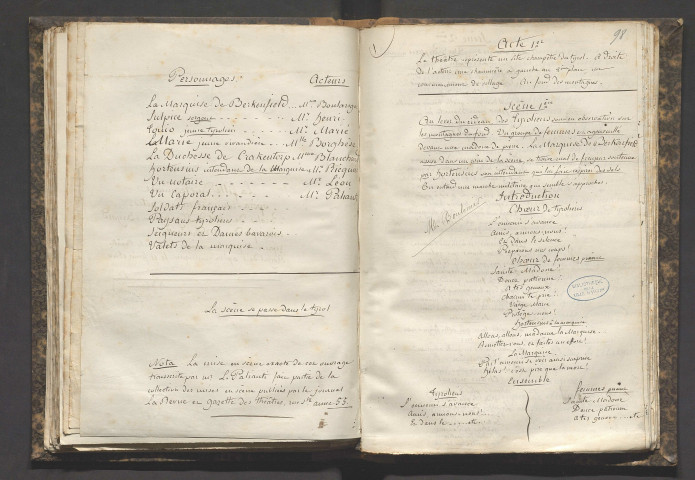 Personnages. Acteurs
La Marquise de Berkenfield Mme Boulanger
Sulpice sergent Mr. Henri
Tonio jeune tyrolien Mr. Marié
Marie jeune vivandière Mlle Borghèse
La Duchesse de Crakentorp Mme Blanchard
hortensius intendant de la Marquise Mr. Ricquier
Un notaire Mr. Léon
Un Caporal Mr. Palianti
Soldats français
Paysans tyroliens
Seigneurs et Dames bavarois
Valets de la marquise
La Scène se passe dans le tyrol
Nota La mise en scène exacte de cet ouvrage
transcrite par mr. L. Palianti fait partie de la
collection des mises en scène publiées par le journal
La Revue et gazette des théâtres, rue Ste anne 55.
1
98
Acte 1er
Le théâtre représente un site champêtre du tyrol. à droite
de l'acteur une chaumière à gauche au 2me plan un
commencement de village. Au fond des montagnes.
Scène 1ère
Au lever du rideau des tyroliens sont en observation sur
les montagnes du fond. Un groupe de femmes est agenouillé
devant une madone de pierre. La Marquise de Berkenfield
assise dans un coin de la scène se trouve mal de frayeur soutenue
par hortensius son intendant qui lui fait respirer des sels.
On entend une marche militaire qui semble s'approcher.
Introduction
Mme Boulanger
Chœur de tyroliens
L'ennemi s'avance
Amis, armons-nous!
Et dans le silence
Préparons nos coups!
Chœur de femmes priant
Sainte Madone!
Douce patronne!
A tes genoux
Chacun te prie!
Vierge Marie
Protège nous!
hortensius à la marquise
Allons, allons, madame la Marquise
Remettez-vous, et faites un effort!
La Marquise
Par l'ennemi se voir ainsi surprise
hélas! c'est pire que la mort
Ensemble
Tyroliens
L'ennemi s'avance
Amis, armons-nous!
Et dans le ... etc.
femmes priant
Sainte Madone
Douce patronne
A tes genoux ... etc